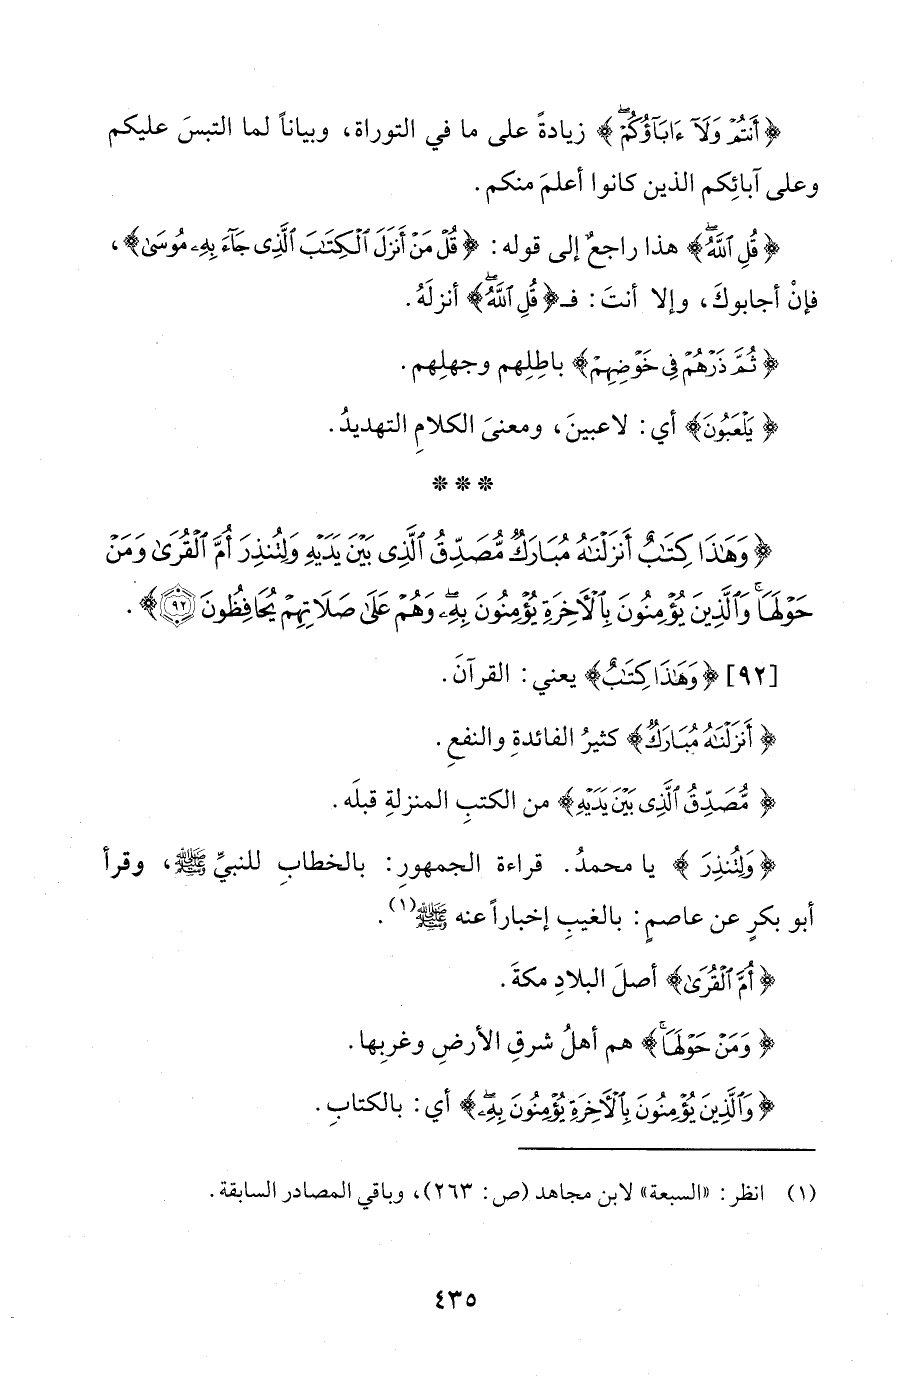 ﴿أَنتُمْ وَلَآ ءَابَآؤُكُمْۖ﴾ زيادةً على ما في التوراة، وبياناً لما التبسَ عليكم
وعلى آبائِكم الذين كانوا أعلمَ منكم.
﴿قُلِ ٱللَّهُۖ﴾ هذا راجعٌ إلى قوله: ﴿قُلْ مَنْ أَنزَلَ ٱلْكِتَٰبَ ٱلَّذِى جَآءَ بِهِۦ مُوسَىٰ﴾،
فإنْ أجابوكَ، وإلا أنتَ: فـ﴿قُلِ ٱللَّهُۖ﴾ أنزلَهُ.
﴿ثُمَّ ذَرْهُمْ فِى خَوْضِهِمْ﴾ باطِلِهم وجهلِهم.
﴿يَلْعَبُونَ﴾ أي: لاعبينَ، ومعنىَ الكلامِ التهديدُ.
* * *
﴿وَهَٰذَا كِتَٰبٌ أَنزَلْنَٰهُ مُبَارَكٌ مُّصَدِّقُ ٱلَّذِى بَيْنَ يَدَيْهِ وَلِتُنذِرَ أُمَّ ٱلْقُرَىٰ وَمَنْ
حَوْلَهَاۚ وَٱلَّذِينَ يُؤْمِنُونَ بِٱلْأَخِرَةِ يُؤْمِنُونَ بِهِۦۖ وَهُمْ عَلَىٰ صَلَاتِهِمْ يُحَافِظُونَ ٩٢﴾.
[٩٢] ﴿وَهَٰذَا كِتَٰبٌ﴾ يعني: القرآنَ.
﴿أَنزَلْنَٰهُ مُبَارَكٌ﴾ كثيرُ الفائدةِ والنفعِ.
﴿مُّصَدِّقُ ٱلَّذِى بَيْنَ يَدَيْهِ﴾ من الكتبِ المنزلةِ قبلَه.
﴿وَلِتُنذِرَ﴾ يا محمدُ. قراءة الجمهورِ: بالخطابِ للنبيِّ ﷺ، وقرأ
أبو بكرٍ عن عاصمٍ: بالغيبِ إخباراً عنه ﷺ(١).
﴿أُمَّ ٱلْقُرَىٰ﴾ أصلَ البلادِ مكةَ.
﴿وَمَنْ حَوْلَهَاۚ﴾ هم أهلُ شرقِ الأرضِ وغربِها.
﴿وَٱلَّذِينَ يُؤْمِنُونَ بِٱلْأَخِرَةِ يُؤْمِنُونَ بِهِۦۖ﴾ أي: بالكتابِ.
(١) انظر: «السبعة» لابن مجاهد (ص: ٢٦٣)، وباقي المصادر السابقة.
٤٣٥